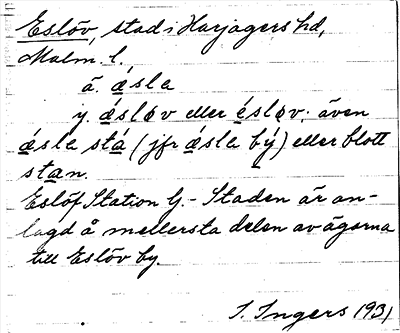 Eslöv, stad i Harjagers hd,
Malm. l.
ä. ásla
y. ásløv eller ésløv; även
ásla stá (jfr ásla bý) eller blott
stan.
Eslöf Station G. - Staden är an-
lagd å mellersta delen av ägorna
till Eslöv by.
I. Ingers 1931